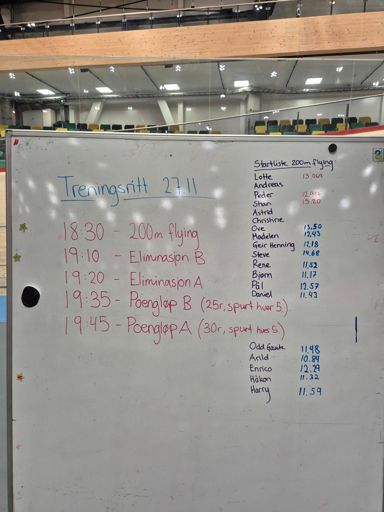 Treningsritt 27.11
18:30 - 200m flying
19:10 - Eliminasjon B
19:20 - Eliminasjon A
19:35 - Poengløp B (25r, spurt hver 5)
19:45 - Poengløp A (30r, spurt hver 5)
Startliste 200m flying:
Lotte
Andreas
Peder
Stian 15.20
Astrid
Christine
Ove 13,50
Madelen 12,43
Geir Henning 12,18
Steve 14,68
Rene 11,52
Bjørn 11,17
Pål 12.57
Daniel 11.43
Odd Gaute 11,48
Arild 10.84
Enrico
Håkon 11.32
Harry 11.59